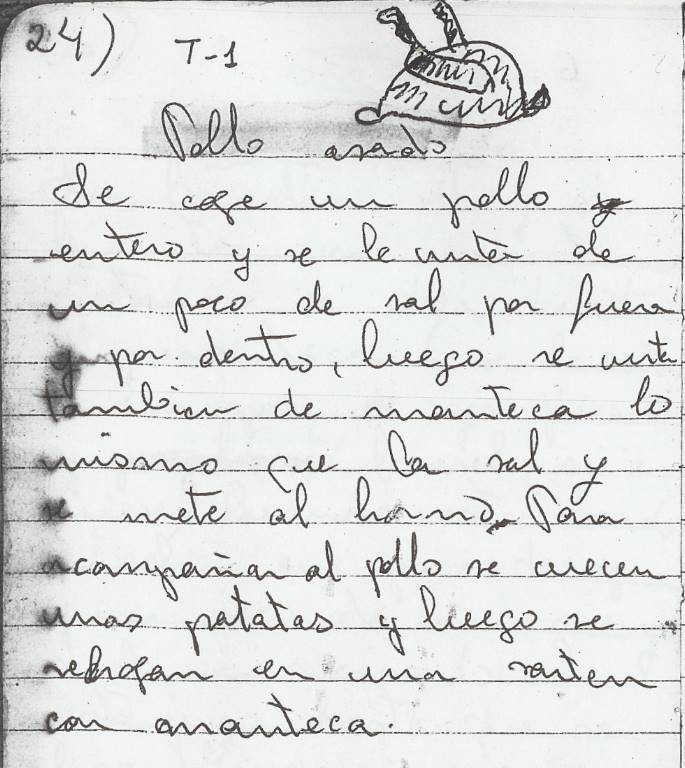 24) T-1
Pollo asado
Se coge un pollo
entero y se le unta de
un poco de sal por fuera
y por dentro, luego se unta
tambien de manteca lo
mismo que la sal y
se mete al horno. Para
acompañar al pollo se cuecen
unas patatas y luego se
rehogan en una sarten
con manteca.